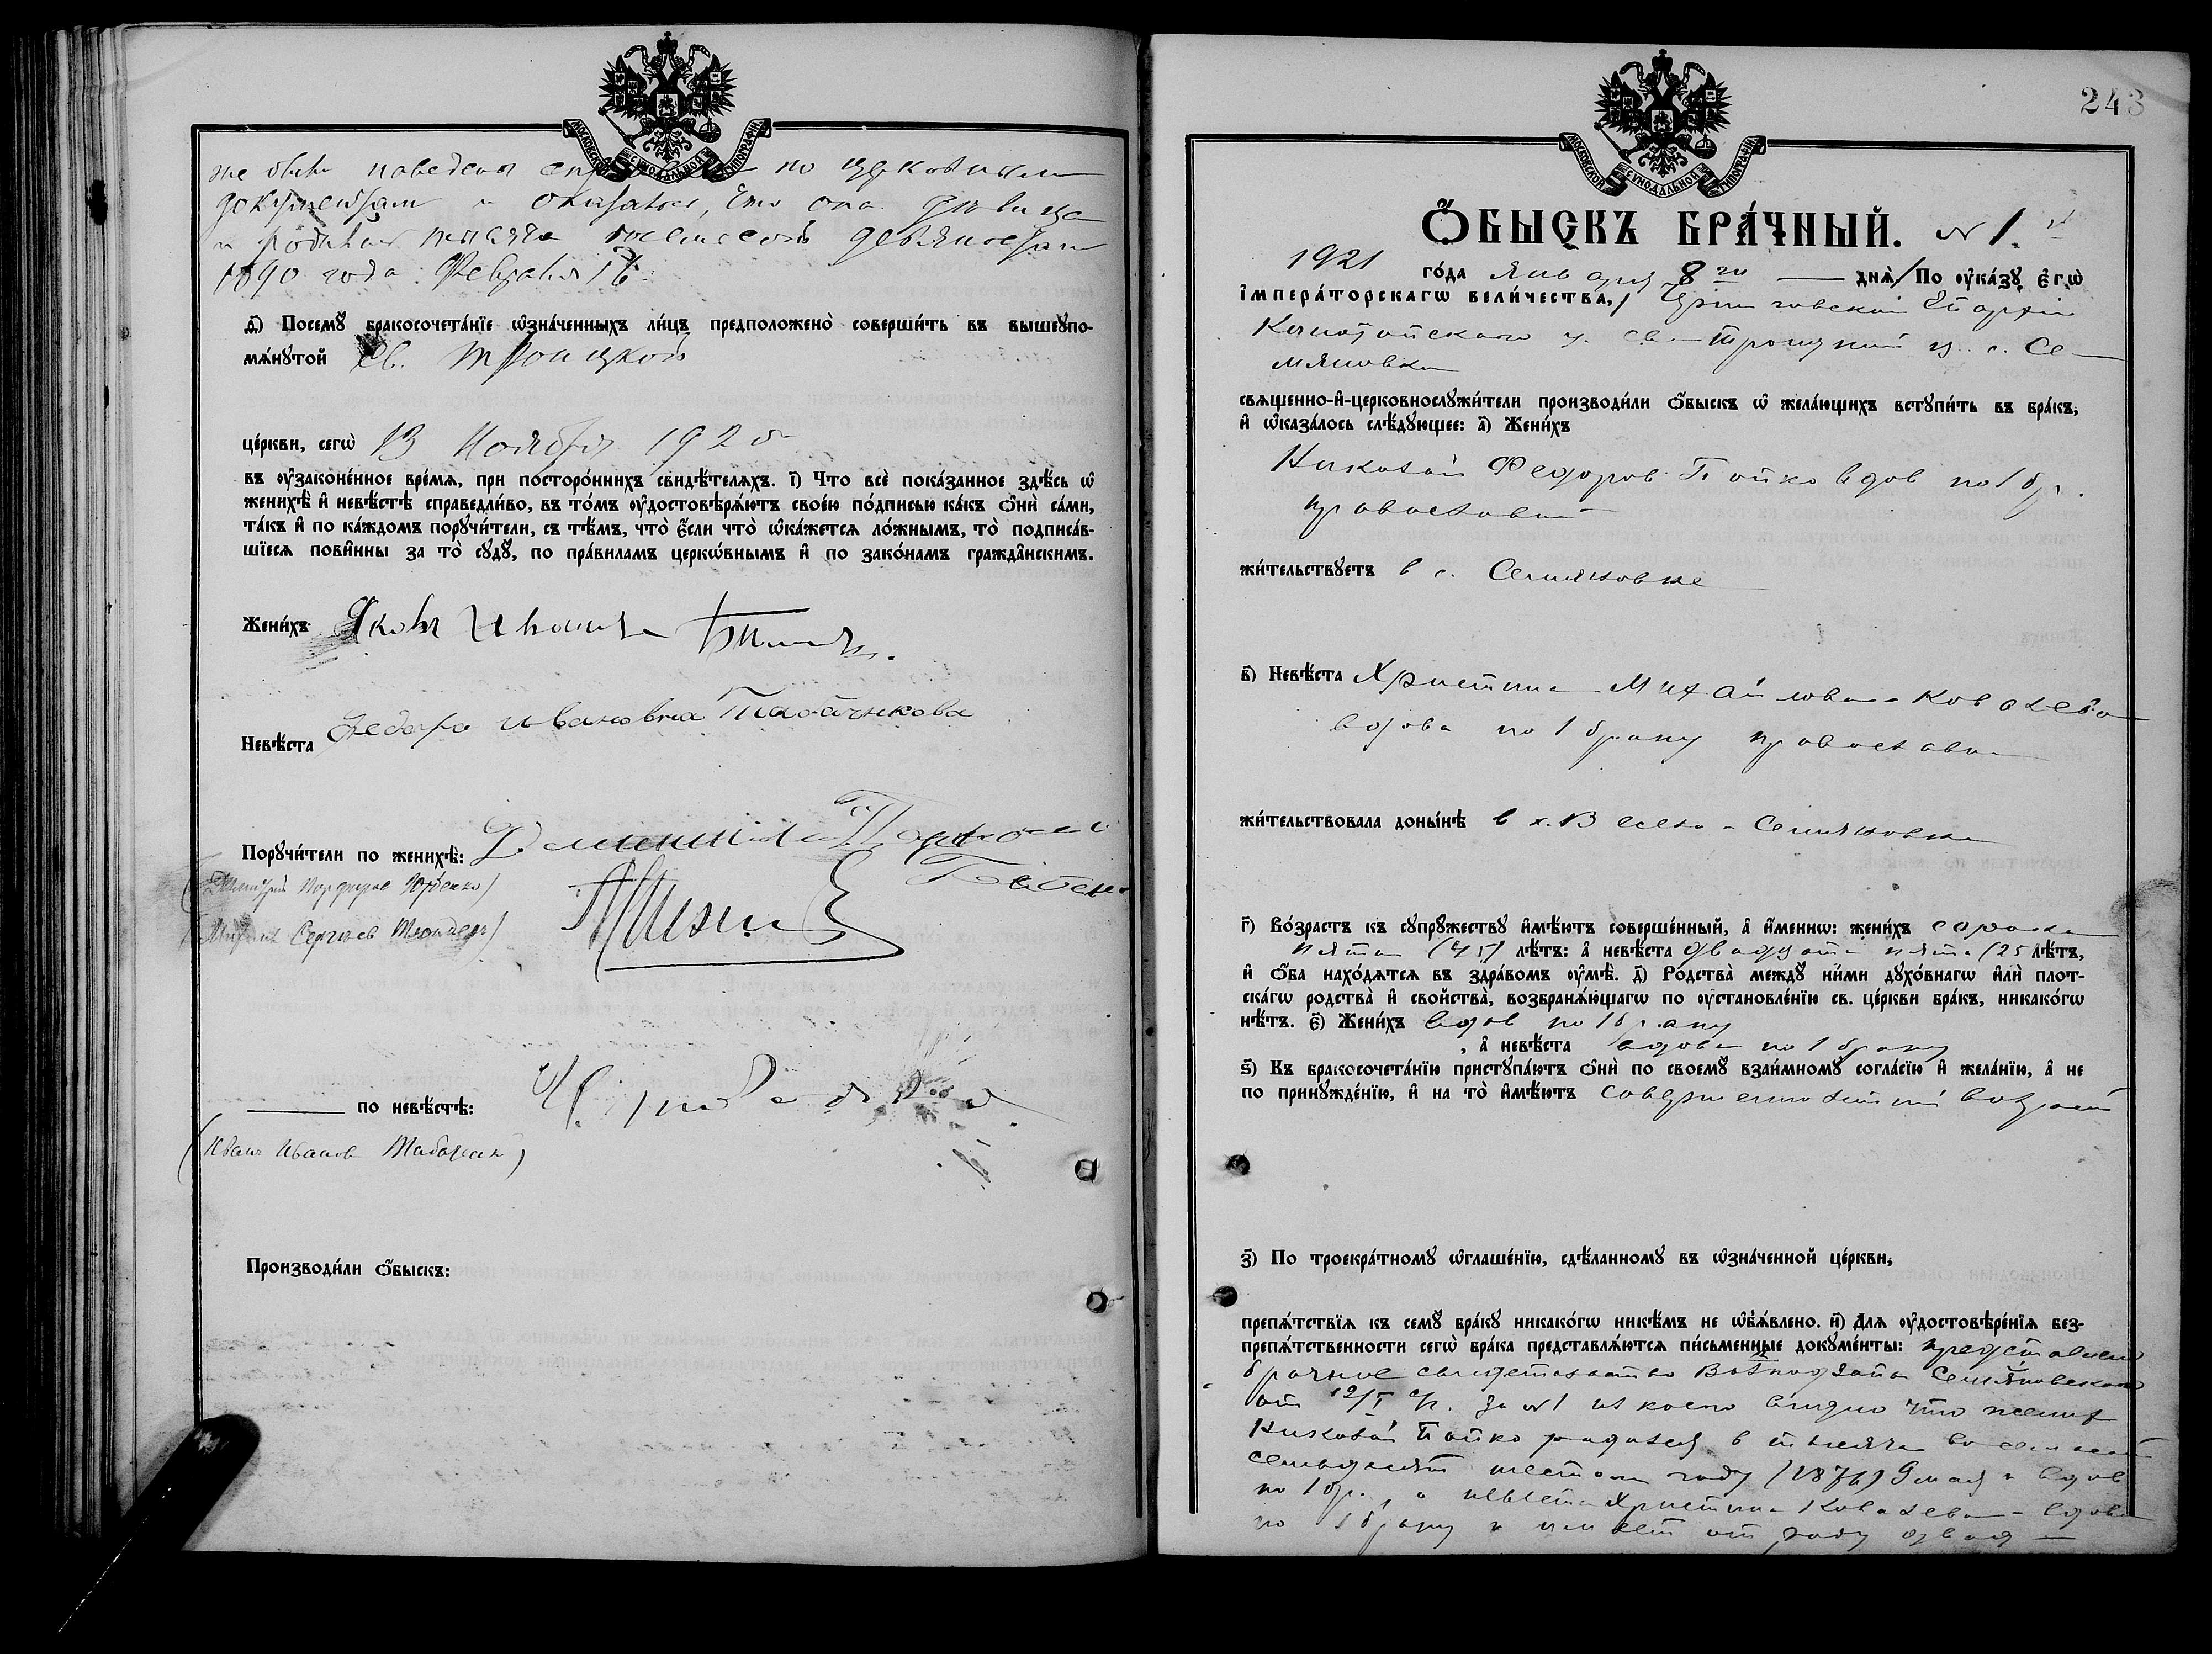 МОСКОВСКОЙ СѴНОДАЛЬНОЙ ТИПОГРАФІИ.
же были наведены по церковным
документам и оказалось, что она девица
и родилась тысяча восемсот девяностом
1890 года Февраля
д҃і) Посемꙋ̀ бракосочета́нїе ѡ҆зна́ченныхъ ли́цъ предположено̀ соверши́ть въ вышеꙋпо-
мѧ́нꙋтой Св. Троицкой
це́ркви, сегѡ̀ 13 Ноября 1920
въ ᲂу҆законе́нное вре́мѧ, при посторо́ннихъ свидѣ́телѧхъ. і҃) Что всѐ пока́занное здѣ́сь ѡ҆
женихѣ̀ и҆ невѣ́стѣ справедли́во, въ то́мъ ᲂу҆достовѣрѧ́ютъ свое́ю по́дписью ка́къ ѻ҆нѝ са́ми,
та́къ и҆ по ка́ждомъ порꙋчи́тели, съ тѣ́мъ, что̀ є҆́сли что̀ ѡ҆ка́жетсѧ ло́жнымъ, то̀ подписа́в-
шїесѧ пови́нны за то̀ сꙋдꙋ̀, по пра́виламъ церкѡ́внымъ и҆ по зако́намъ гражда̑нскимъ.
Жени́хъ Яков Иванов
Невѣ́ста Федора Ивановна Табачникова
Порꙋчи́тели по женихѣ̀:
(Димитрий Порфиров)
Сергиев
по невѣ́стѣ:
(Иван Иванов)
Производи́ли ѻ҆́быскъ:
243
МОСКОВСКОЙ СѴНОДАЛЬНОЙ ТИПОГРАФІИ.
Ѻ҆́БЫСКЪ БРА́ЧНЫЙ. № 1
1921 го́да января 8го днѧ̀ По ᲂу҆ка́зꙋ Є҆гѡ̀
І҆мпера́торскагѡ Вели́чества, Черниговской Епархии
Конотопского у. св. Троицкой ц. с. Се-
мяновки
свѧще́нно-и҆-церковнослꙋжи́тели производи́ли ѻ҆́быскъ ѡ҆ жела́ющихъ встꙋпи́ть въ бра́къ,
и҆ ѡ҆каза́лось слѣ́дꙋющее: а҃) Жени́хъ
Николай Федоров Бойко вдов по 1 бр.
православн
жи́тельствꙋетъ в с. Семяновке
в҃) Невѣ́ста Христина Михайловна Ковалева
вдова по 1 браку православн
жи́тельствовала доны́нѣ в х. Весело-Семяновка
г҃) Во́зрастъ къ сꙋпрꙋ́жествꙋ и҆мѣ́ютъ соверше́нный, а҆ и҆́меннѡ: жени́хъ сорока
пяти (45) лѣ́тъ: а҆ невѣ́ста двадцати пяти (25 лѣ́тъ,
и҆ ѻ҆́ба нахо́дѧтсѧ въ здра́вомъ ᲂу҆мѣ̀. д҃) Ро́дства̀ междꙋ̀ ни́ми дꙋхо́внагѡ и҆лѝ плот-
ска́гѡ родства̀ и҆ сво́йства̀, возбранѧ́ющагѡ по ᲂу҆становле́нїю св. це́ркви бра́къ, никако́гѡ
нѣ́тъ. є҃) Жени́хъ вдов по 1 браку
, а҆ невѣ́ста вдова по 1 браку
ѕ҃) Къ бракосочета́нїю пристꙋпа́ютъ ѻ҆нѝ по своемꙋ̀ взаи́мномꙋ согла́сїю и҆ жела́нїю, а҆ не
по принꙋжде́нїю, и҆ на то̀ и҆мѣ́ютъ совершеннолетний возраст
з҃) По троекра́тномꙋ ѡ҆глаше́нїю, сдѣ́ланномꙋ въ ѡ҆зна́ченной це́ркви,
препѧ́тствїѧ къ семꙋ̀ бра́кꙋ никако́гѡ никѣ́мъ не ѡ҆б̾ѧ́влено. и҃) Длѧ ᲂу҆достовѣ́рє́нїѧ без-
препѧ́тственности сегѡ̀ бра́ка представлѧ́ютсѧ пи́сьменные докꙋме́нты: представлено
брачное свидетельство Семяновского
от 12/I с/г. за №1 из коего видно что жених
Николай Бойко родился в тысяча восемсот
семьдесят шестом году (1876) 9 мая и вдов
по 1 бр., а невеста Христина Ковалева - вдова
по 1 браку и имеет от роду двад-